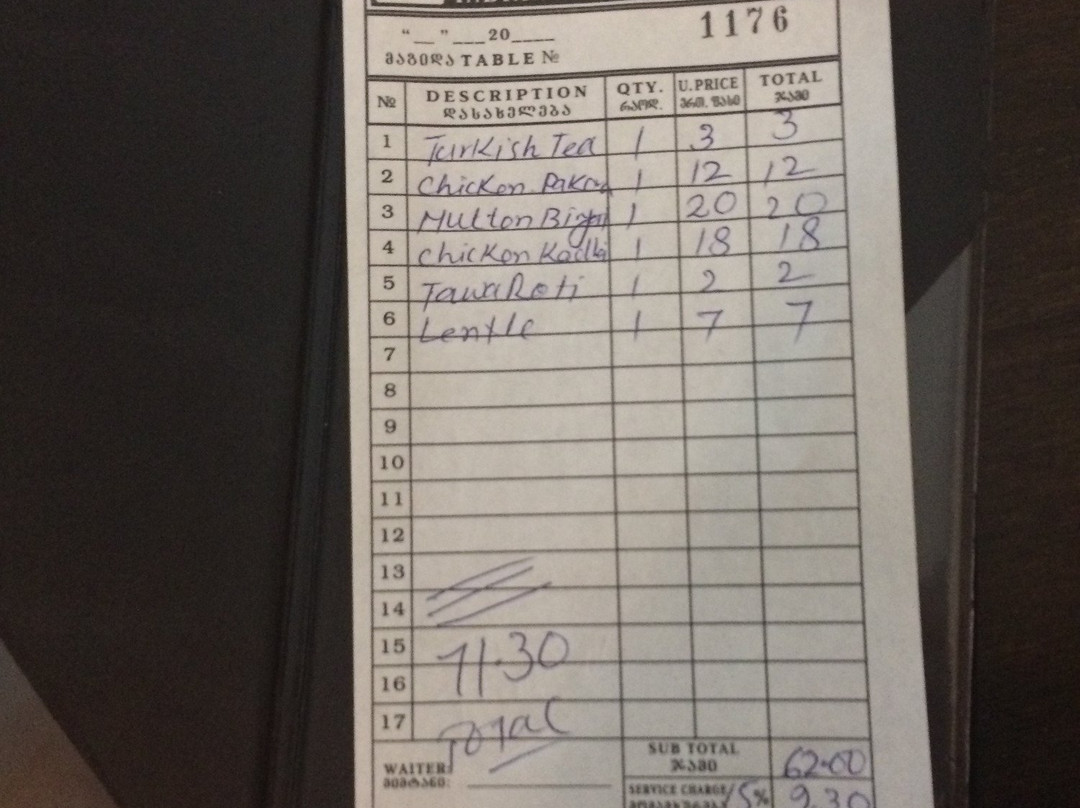 1176
“__”___20____
მაგიდა TABLE №
№ DESCRIPTION QTY. U.PRICE TOTAL
დასახელება რაოდ. ერთ. ფასი ჯამი
1 Turkish Tea 1 3 3
2 Chicken Pakora 1 12 12
3 Mutton 1 20 20
4 Chicken Kadhi 1 18 18
5 Tawa Roti 1 2 2
6 Lentle 1 7 7
7
8
9
10
11
12
13
14
15 71.30
16
17 Total
SUB TOTAL 62.00
ჯამი
WAITER:
მიმტანი:
SERVICE CHARGE 15% 9.30